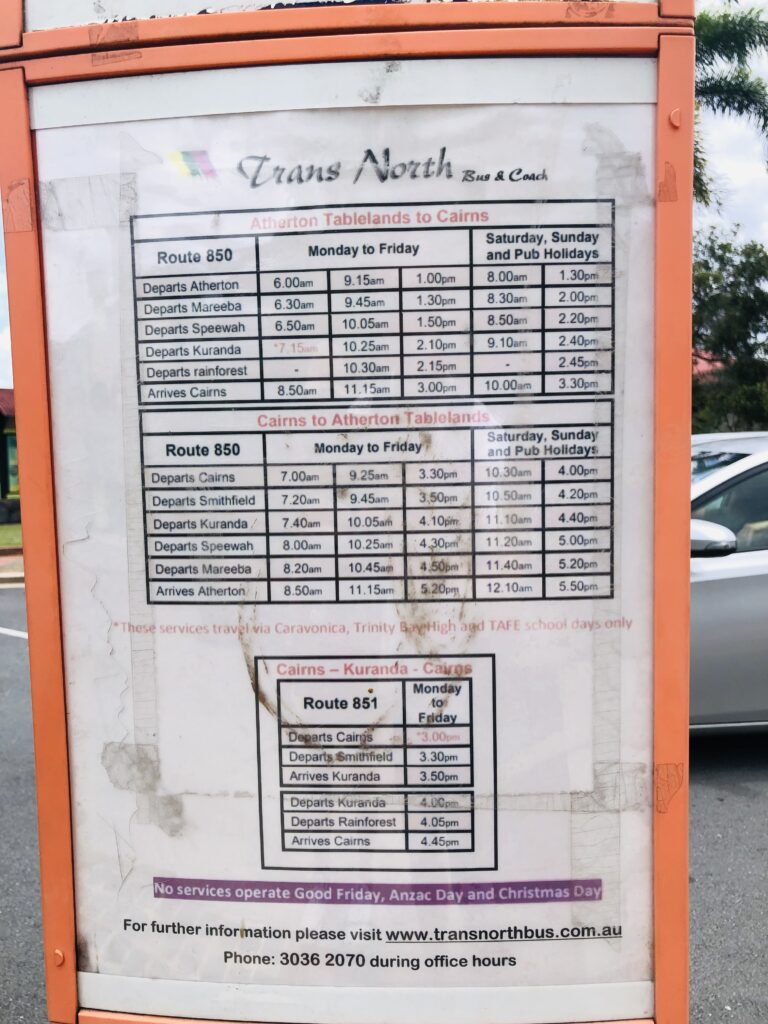 Trans North Bus & Coach
Atherton Tablelands to Cairns
Route 850 Monday to Friday Saturday, Sunday and Pub Holidays
Departs Atherton 6.00am 9.15am 1.00pm 8.00am 1.30pm
Departs Mareeba 6.30am 9.45am 1.30pm 8.30am 2.00pm
Departs Speewah 6.50am 10.05am 1.50pm 8.50am 2.20pm
Departs Kuranda *7.15am 10.25am 2.10pm 9.10am 2.40pm
Departs rainforest - 10.30am 2.15pm - 2.45pm
Arrives Cairns 8.50am 11.15am 3.00pm 10.00am 3.30pm
Cairns to Atherton Tablelands
Route 850 Monday to Friday Saturday, Sunday and Pub Holidays
Departs Cairns 7.00am 9.25am 3.30pm 10.30am 4.00pm
Departs Smithfield 7.20am 9.45am 3.50pm 10.50am 4.20pm
Departs Kuranda 7.40am 10.05am 4.10pm 11.10am 4.40pm
Departs Speewah 8.00am 10.25am 4.30pm 11.20am 5.00pm
Departs Mareeba 8.20am 10.45am 4.50pm 11.40am 5.20pm
Arrives Atherton 8.50am 11.15am 5.20pm 12.10am 5.50pm
*These services travel via Caravonica, Trinity Bay High and TAFE school days only
Cairns – Kuranda - Cairns
Route 851 Monday to Friday
Departs Cairns *3.00pm
Departs Smithfield 3.30pm
Arrives Kuranda 3.50pm
Departs Kuranda 4.00pm
Departs Rainforest 4.05pm
Arrives Cairns 4.45pm
No services operate Good Friday, Anzac Day and Christmas Day
For further information please visit www.transnorthbus.com.au
Phone: 3036 2070 during office hours